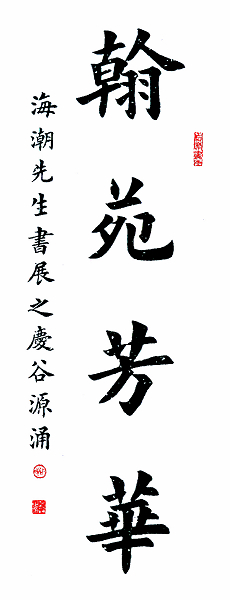 翰苑芳華
海潮先生書展之慶谷源涌